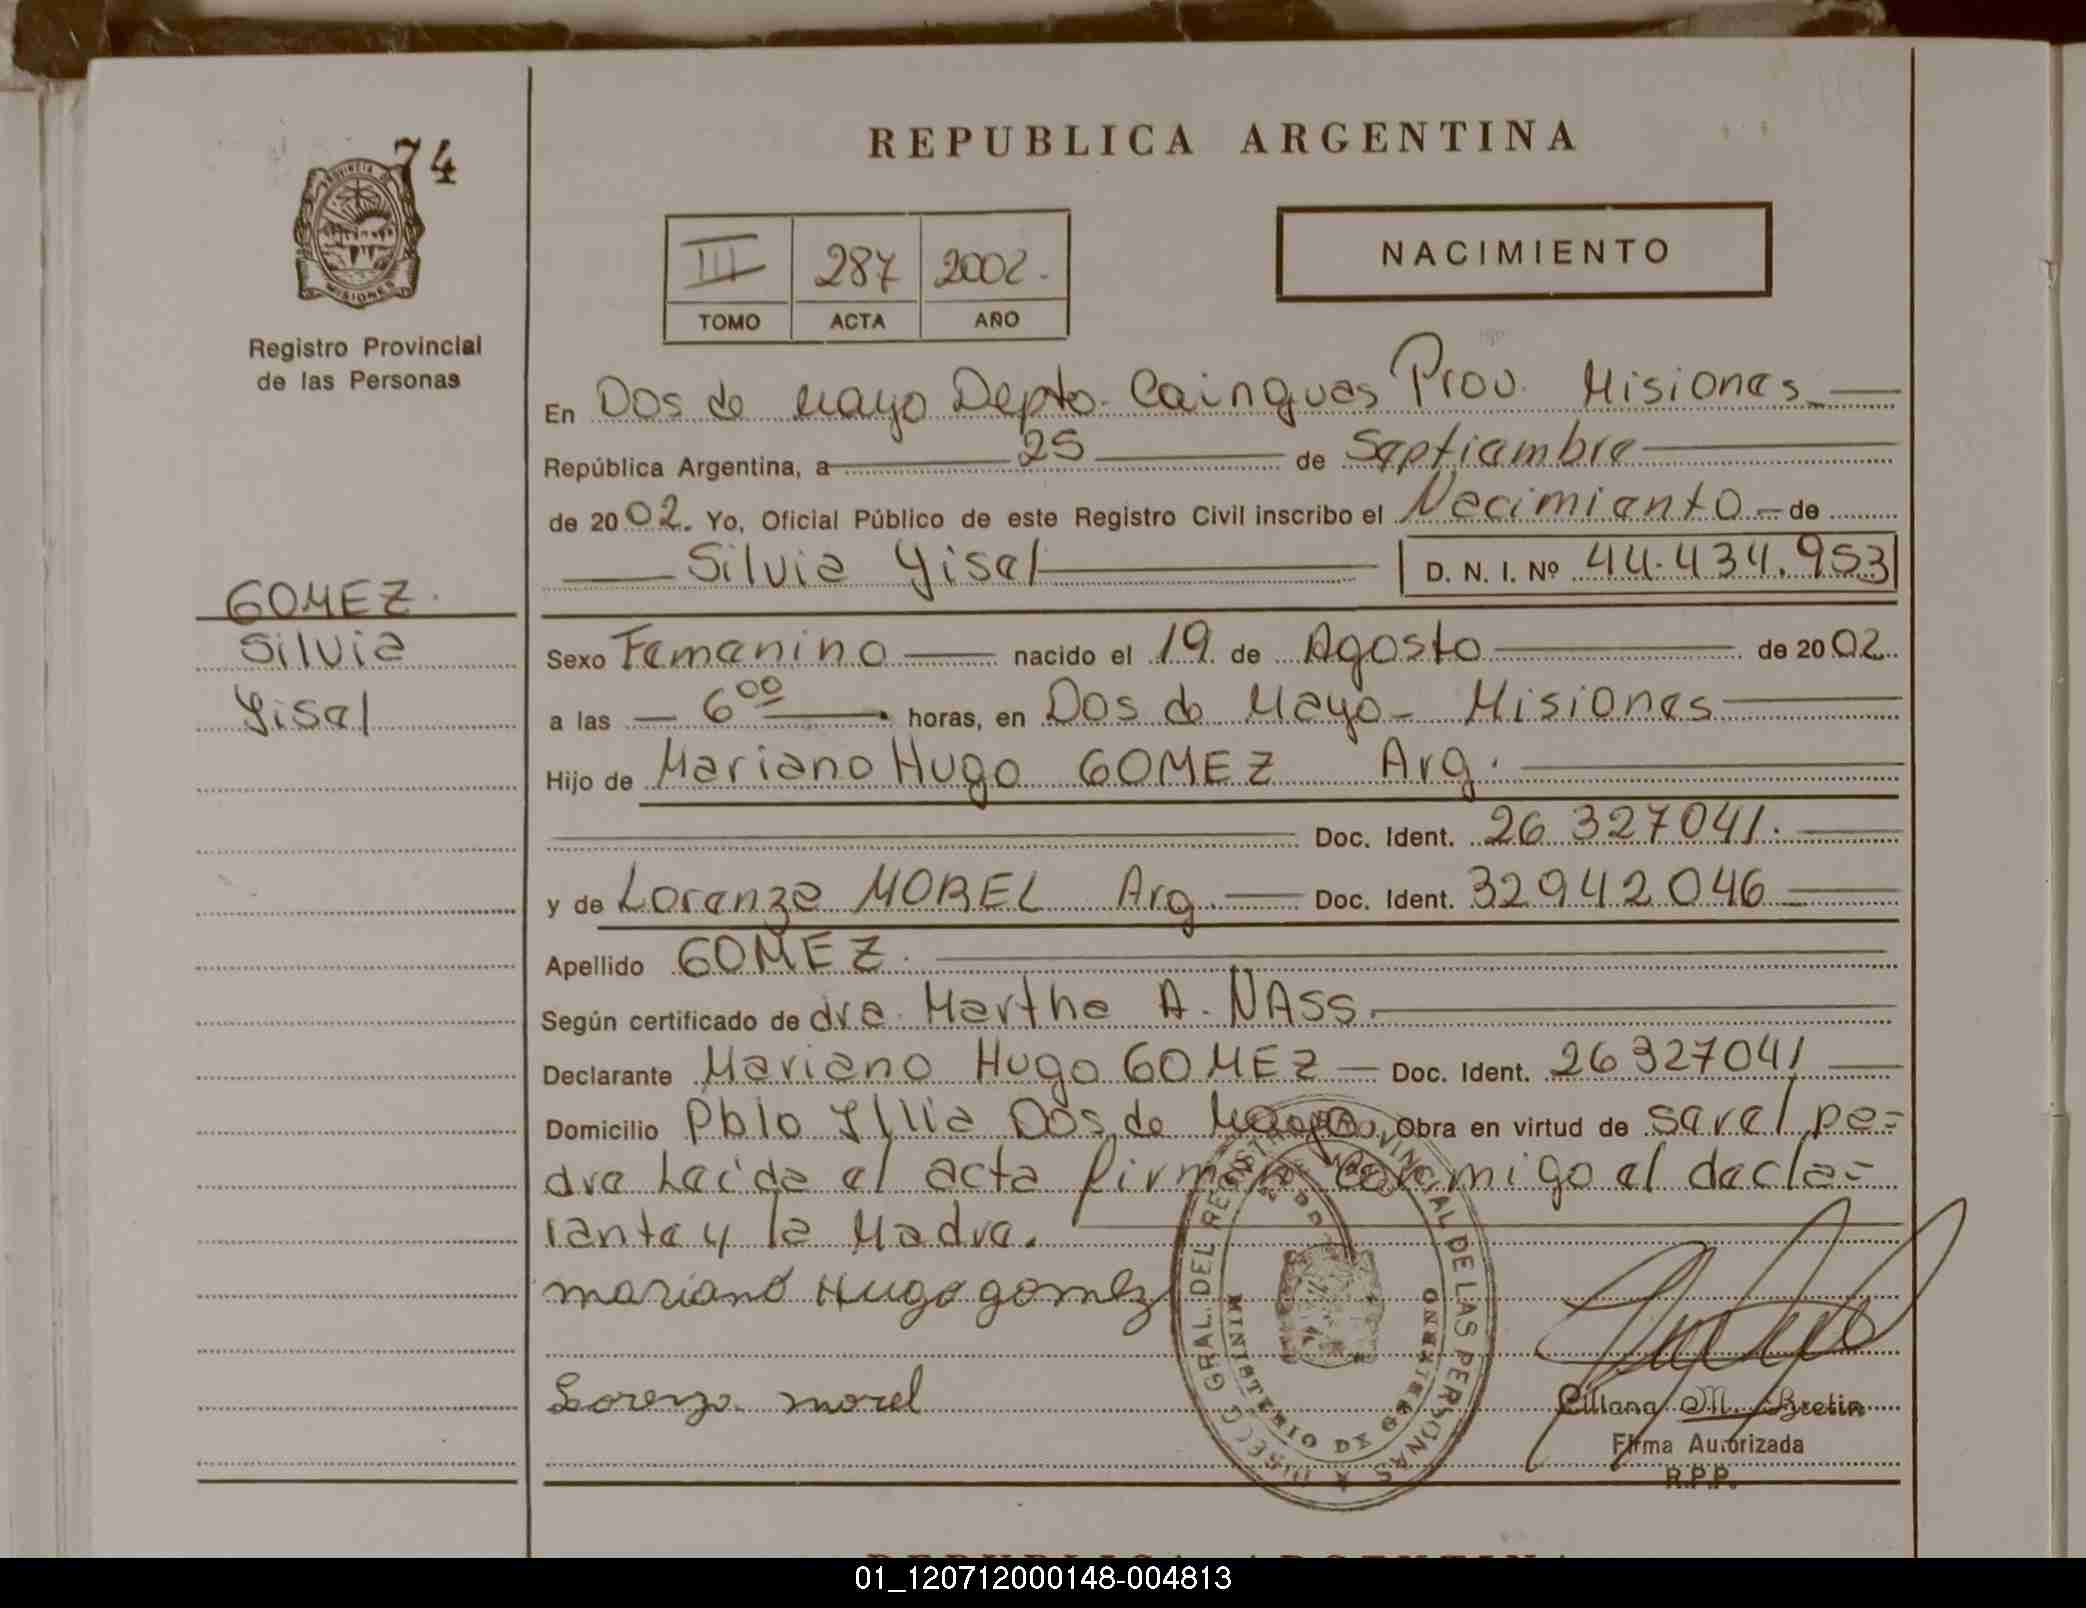 74
PROVINCIA DE
MISIONES
Registro Provincial
de las Personas
REPUBLICA ARGENTINA
III 287 2002.
TOMO ACTA AÑO
NACIMIENTO
En Dos de Mayo Depto. Cainguas Prov. Misiones
República Argentina, a 25 de Septiembre
de 2002. Yo, Oficial Público de este Registro Civil inscribo el Nacimiento de
Silvia Yisel D. N. I. Nº 44.434.953
GOMEZ.
Silvia
Yisel
Sexo Femenino nacido el 19 de Agosto de 2002
a las 6 00 horas, en Dos de Mayo - Misiones
Hijo de Mariano Hugo GOMEZ Arg.
Doc. Ident. 26 327041.
y de Lorenza MOREL Arg. Doc. Ident. 32942046
Apellido GOMEZ.
Según certificado de dra. Martha A. NASS.
Declarante Mariano Hugo GOMEZ Doc. Ident. 26327041
Domicilio Pblo Illia Dos de Mayo, Obra en virtud de ser el pa=
dre Leída el acta firman conmigo el decla=
rante y la Madre.
mariano Hugo gomez
Lorenza morel
DIRECC GRAL. DEL REGISTRO PROVINCIAL DE LAS PERSONAS
MINISTERIO DE GOBIERNO
Liliana M. Bretin
Firma Autorizada
R.P.P.
REPUBLICA ARGENTINA
01_120712000148-004813